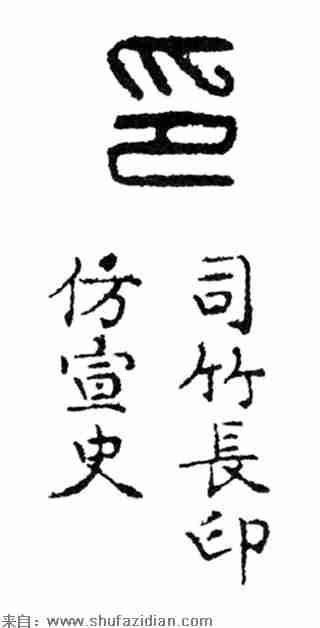 印
司竹長印
仿宣史
来自：www.shufazidian.com